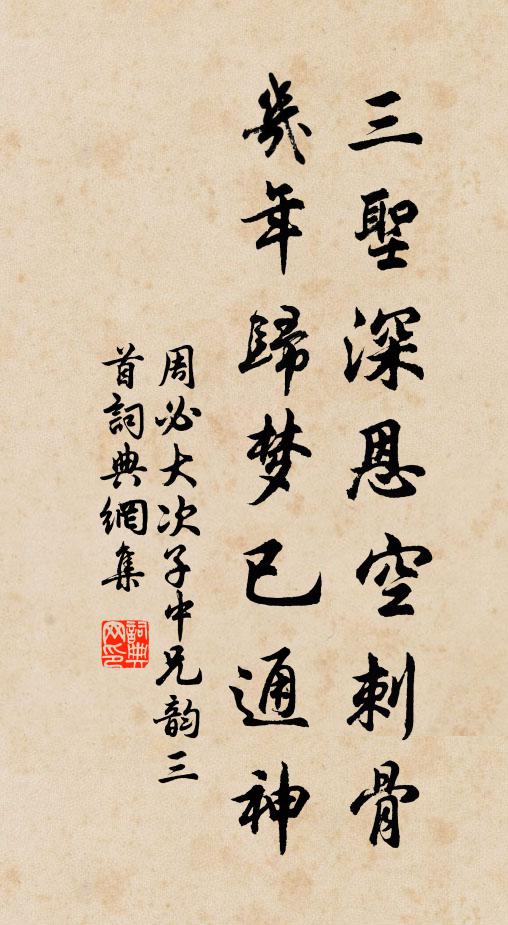 三聖深恩空刺骨
幾年歸梦已通神
周必大次子中兄韵三
首詞典網集
詞典
网印